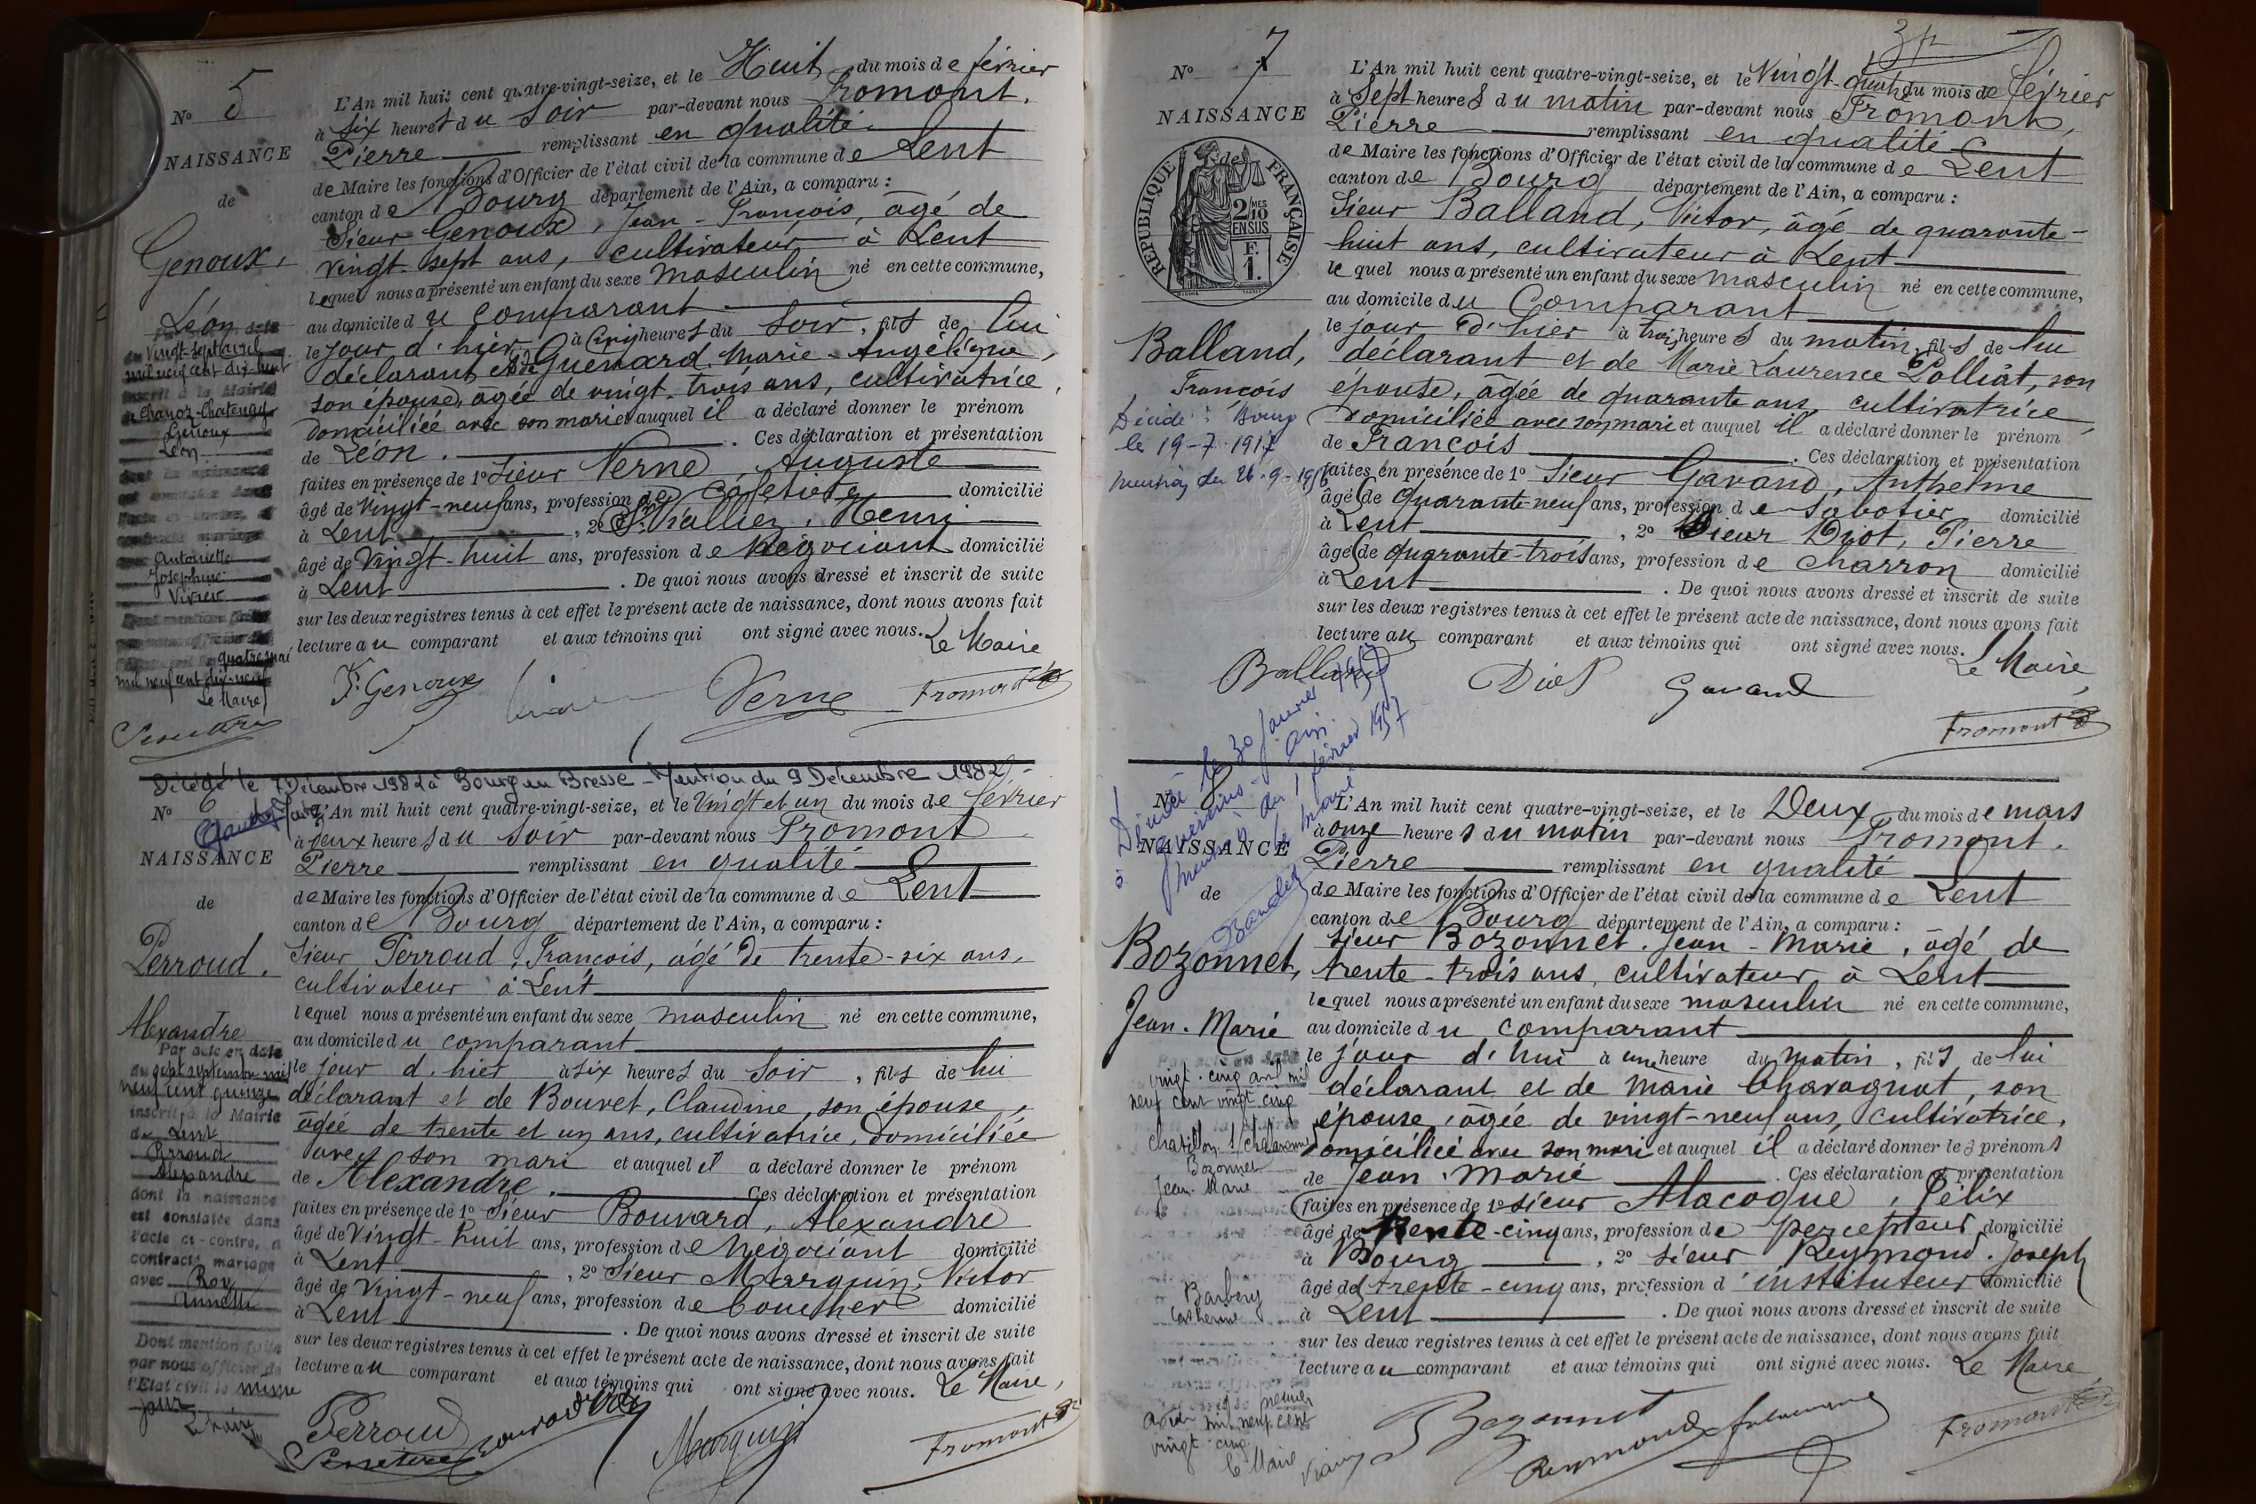 No 5
NAISSANCE
de
Genoux,
Léon
vingt-sept avril
mil neuf cent dix-neuf
inscrit à la Mairie
de Chanoz-Chatenay
Genoux
Léon
dont la naissance
est constatée dans
l'acte ci-contre, a
contracté mariage
Antoinette
Josephine
Vivier
Dont mention faite
quatre mai
mil neuf cent dix-neuf
Le Maire
L'An mil huit cent quatre-vingt-seize, et le Huit du mois de février
à six heures du soir par-devant nous Fromont,
Pierre remplissant en qualité
de Maire les fonctions d'Officier de l'état civil de la commune de Lent
canton de Bourg département de l'Ain, a comparu :
Sieur Genoux, Jean-François, âgé de
vingt-sept ans, cultivateur à Lent
lequel nous a présenté un enfant du sexe masculin né en cette commune,
au domicile du comparant
le jour d'hier à cinq heures du soir, fils de lui
déclarant et de Guenard Marie-Angélique,
son épouse, âgée de vingt-trois ans, cultivatrice,
domiciliée avec son mari et auquel il a déclaré donner le prénom
de Léon. Ces déclaration et présentation
faites en présence de 1o Sieur Verne, Auguste
âgé de vingt-neuf ans, profession de cafetier domicilié
à Lent, 2o Sr Viallier, Henri
âgé de vingt-huit ans, profession de négociant domicilié
à Lent. De quoi nous avons dressé et inscrit de suite
sur les deux registres tenus à cet effet le présent acte de naissance, dont nous avons fait
lecture au comparant et aux témoins qui ont signé avec nous. Le Maire
F. Genoux Verne Fromont
Décédé le 7 Décembre 1982 à Bourg en Bresse - Mention du 9 Décembre 1982
No 6
NAISSANCE
de
Perroud,
Alexandre
Par acte en date
du sept septembre mil
neuf cent quinze
inscrit à la Mairie
de Lent
Perroud
Alexandre
dont la naissance
est constatée dans
l'acte ci-contre, a
contracté mariage
avec Roy
Annette
Dont mention faite
par nous officier de
l'Etat civil le même
jour
Le Maire
L'An mil huit cent quatre-vingt-seize, et le Vingt et un du mois de février
à deux heures du soir par-devant nous Fromont
Pierre remplissant en qualité
de Maire les fonctions d'Officier de l'état civil de la commune de Lent
canton de Bourg département de l'Ain, a comparu :
Sieur Perroud, François, âgé de trente-six ans,
cultivateur à Lent
lequel nous a présenté un enfant du sexe masculin né en cette commune,
au domicile du comparant
le jour d'hier à six heures du soir, fils de lui
déclarant et de Bouvet, Claudine, son épouse,
âgée de trente et un ans, cultivatrice, domiciliée
avec son mari et auquel il a déclaré donner le prénom
de Alexandre. Ces déclaration et présentation
faites en présence de 1o Sieur Bouvard, Alexandre
âgé de vingt-huit ans, profession de négociant domicilié
à Lent, 2o Sieur Marquin, Victor
âgé de vingt-neuf ans, profession de boucher domicilié
à Lent. De quoi nous avons dressé et inscrit de suite
sur les deux registres tenus à cet effet le présent acte de naissance, dont nous avons fait
lecture au comparant et aux témoins qui ont signé avec nous. Le Maire,
Perroud Bouvard Marquin Fromont
No 7
NAISSANCE
de
RÉPUBLIQUE FRANÇAISE
2 MES
10
EN SUS
F.
1.
Balland,
François
Décédé : Bourg
le 19-7-1917
L'An mil huit cent quatre-vingt-seize, et le Vingt-quatre du mois de février
à sept heures du matin par-devant nous Fromont,
Pierre remplissant en qualité
de Maire les fonctions d'Officier de l'état civil de la commune de Lent
canton de Bourg département de l'Ain, a comparu :
Sieur Balland, Victor, âgé de quarante-
huit ans, cultivateur à Lent
lequel nous a présenté un enfant du sexe masculin né en cette commune,
au domicile du comparant
le jour d'hier à trois heures du matin, fils de lui
déclarant et de Marie Laurence Polliat, son
épouse, âgée de quarante ans, cultivatrice,
domiciliée avec son mari et auquel il a déclaré donner le prénom
de François. Ces déclaration et présentation
faites en présence de 1o Sieur Gavand, Anthelme
âgé de quarante-neuf ans, profession de sabotier domicilié
à Lent, 2o Sieur Diot, Pierre
âgé de quarante-trois ans, profession de charron domicilié
à Lent. De quoi nous avons dressé et inscrit de suite
sur les deux registres tenus à cet effet le présent acte de naissance, dont nous avons fait
lecture au comparant et aux témoins qui ont signé avec nous. Le Maire,
Balland Diot Gavand Fromont
No 8
NAISSANCE
de
Bozonnet,
Jean-Marie
vingt-cinq avril mil
neuf cent vingt-cinq
Chatillon s/ Chalaronne
Bozonnet
Jean-Marie
Barbery
Catherine
mil neuf cent
vingt-cinq
le Maire
L'An mil huit cent quatre-vingt-seize, et le Deux du mois de mars
à onze heures du matin par-devant nous Fromont,
Pierre remplissant en qualité
de Maire les fonctions d'Officier de l'état civil de la commune de Lent
canton de Bourg département de l'Ain, a comparu :
Sieur Bozonnet, Jean-Marie, âgé de
trente-trois ans, cultivateur à Lent
lequel nous a présenté un enfant du sexe masculin né en cette commune,
au domicile du comparant
le jour d'hui à une heure du matin, fils de lui
déclarant et de Marie Chavagnat, son
épouse, âgée de vingt-neuf ans, cultivatrice,
domiciliée avec son mari et auquel il a déclaré donner les prénoms
de Jean-Marie. Ces déclaration et présentation
faites en présence de 1o Sieur Alacoque, Félix
âgé de trente-cinq ans, profession de percepteur domicilié
à Bourg, 2o Sieur Reymond, Joseph
âgé de trente-cinq ans, profession d'instituteur domicilié
à Lent. De quoi nous avons dressé et inscrit de suite
sur les deux registres tenus à cet effet le présent acte de naissance, dont nous avons fait
lecture au comparant et aux témoins qui ont signé avec nous. Le Maire
Bozonnet Reymond Fromont